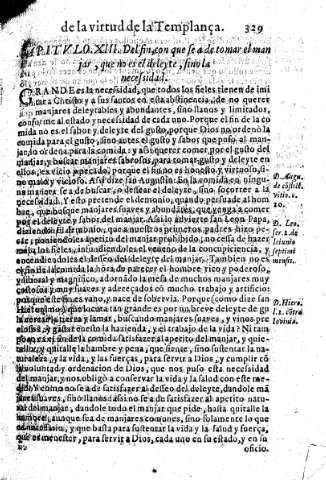 de la virtud de la Templança. 329
CAPITVLO. XIII. Del fin, con que se a de tomar el man
jar, que no es el deleyte, sino la
necessidad.
GRANDE es la necessidad, que todos los fieles tienen de imi
tar a Christo y a sus santos en esta abstinencia, de no querer
manjares deleytables y abundantes, sino llanos y limitados,
conforme al estado y necessidad de cada uno. Porque el fin de la co
mida no es el sabor y deleyte del gusto, porque Dios no ordenò la
comida para el gusto, sino antes el gusto y sabor que puso al man-
jar, lo ordenò para la comida: y assi querer comer por el gusto del
manjar, y buscar manjares sabrosos, para tomar gusto y deleyte en
ellos, es vicio y pecado, porque el fin no es honesto y virtuoso, si-
no malo y vicioso. Assi dize san Augustin. En la comida en ningu-
na manera se a de buscar, o dessear el deleyte, sino socorrer a la
necessidad. Y esto pretende el demonio, quando persuade al hom
bre, que busque manjares suaves y abundantes, que venga a comer
por el deleyte y sabor del manjar. Assi lo advierte san Leon Papa,
diziendo. El demonio, que a nuestros primeros padres hizo pe-
car, poniendoles apetito del manjar prohibido, no cesa de hazer
mal a los fieles, infundiendoles el veneno de la concupiciencia, y
encendiendoles el desseo del deleyte del manjar. Tambien no es
el fin de la comida la hora de parecer el hombre rico y poderoso,
y liberal y magnifico, adornando la mesa de muchos manjares muy
costosos y muy suaves y adereçados con mucho trabajo y artificio:
porque este fin es vano, y nace de sobervia. Porque (como dize san
Hieronimo) que locura tan grande es por un breve deleyte de gu
la, rebolver tierra y mar, buscando manjares suaves, y vinos pre
ciosos, y gastar en esto la hazienda, y el trabajo de la vida? Ni tam
poco es el fin de la comida satisfazer al apetito del manjar, y quie-
tarle, y quitalle la hambre y pena, que siente, sino sustentar la na-
turaleza, y la vida, y las fuerças, para servir a Dios, y cumplir cō
la voluntad y ordenacion de Dios, que nos puso esta necessidad
del manjar, y nos obligò a conservar la vida y la salud con este me-
dio. Y como no se a de satisfazer al desseo del deleyte, dandole mā
jares exquisitos, sino llanos: assi no se a de satisfazer al apetito natu-
ral del manjar, dandole todo el manjar que pide, hasta quitalle la
hambre, aunque sea de manjares comunes, sino solamente lo que
es necessario, y que basta para sustentar la vida y la salud y fuerça,
que es menester, para servir a Dios, cada uno en su estado, y en su
oficio.
D. Leo.
ser. 2. de
ieiunio
septimi
mensis.
D. Hiero.